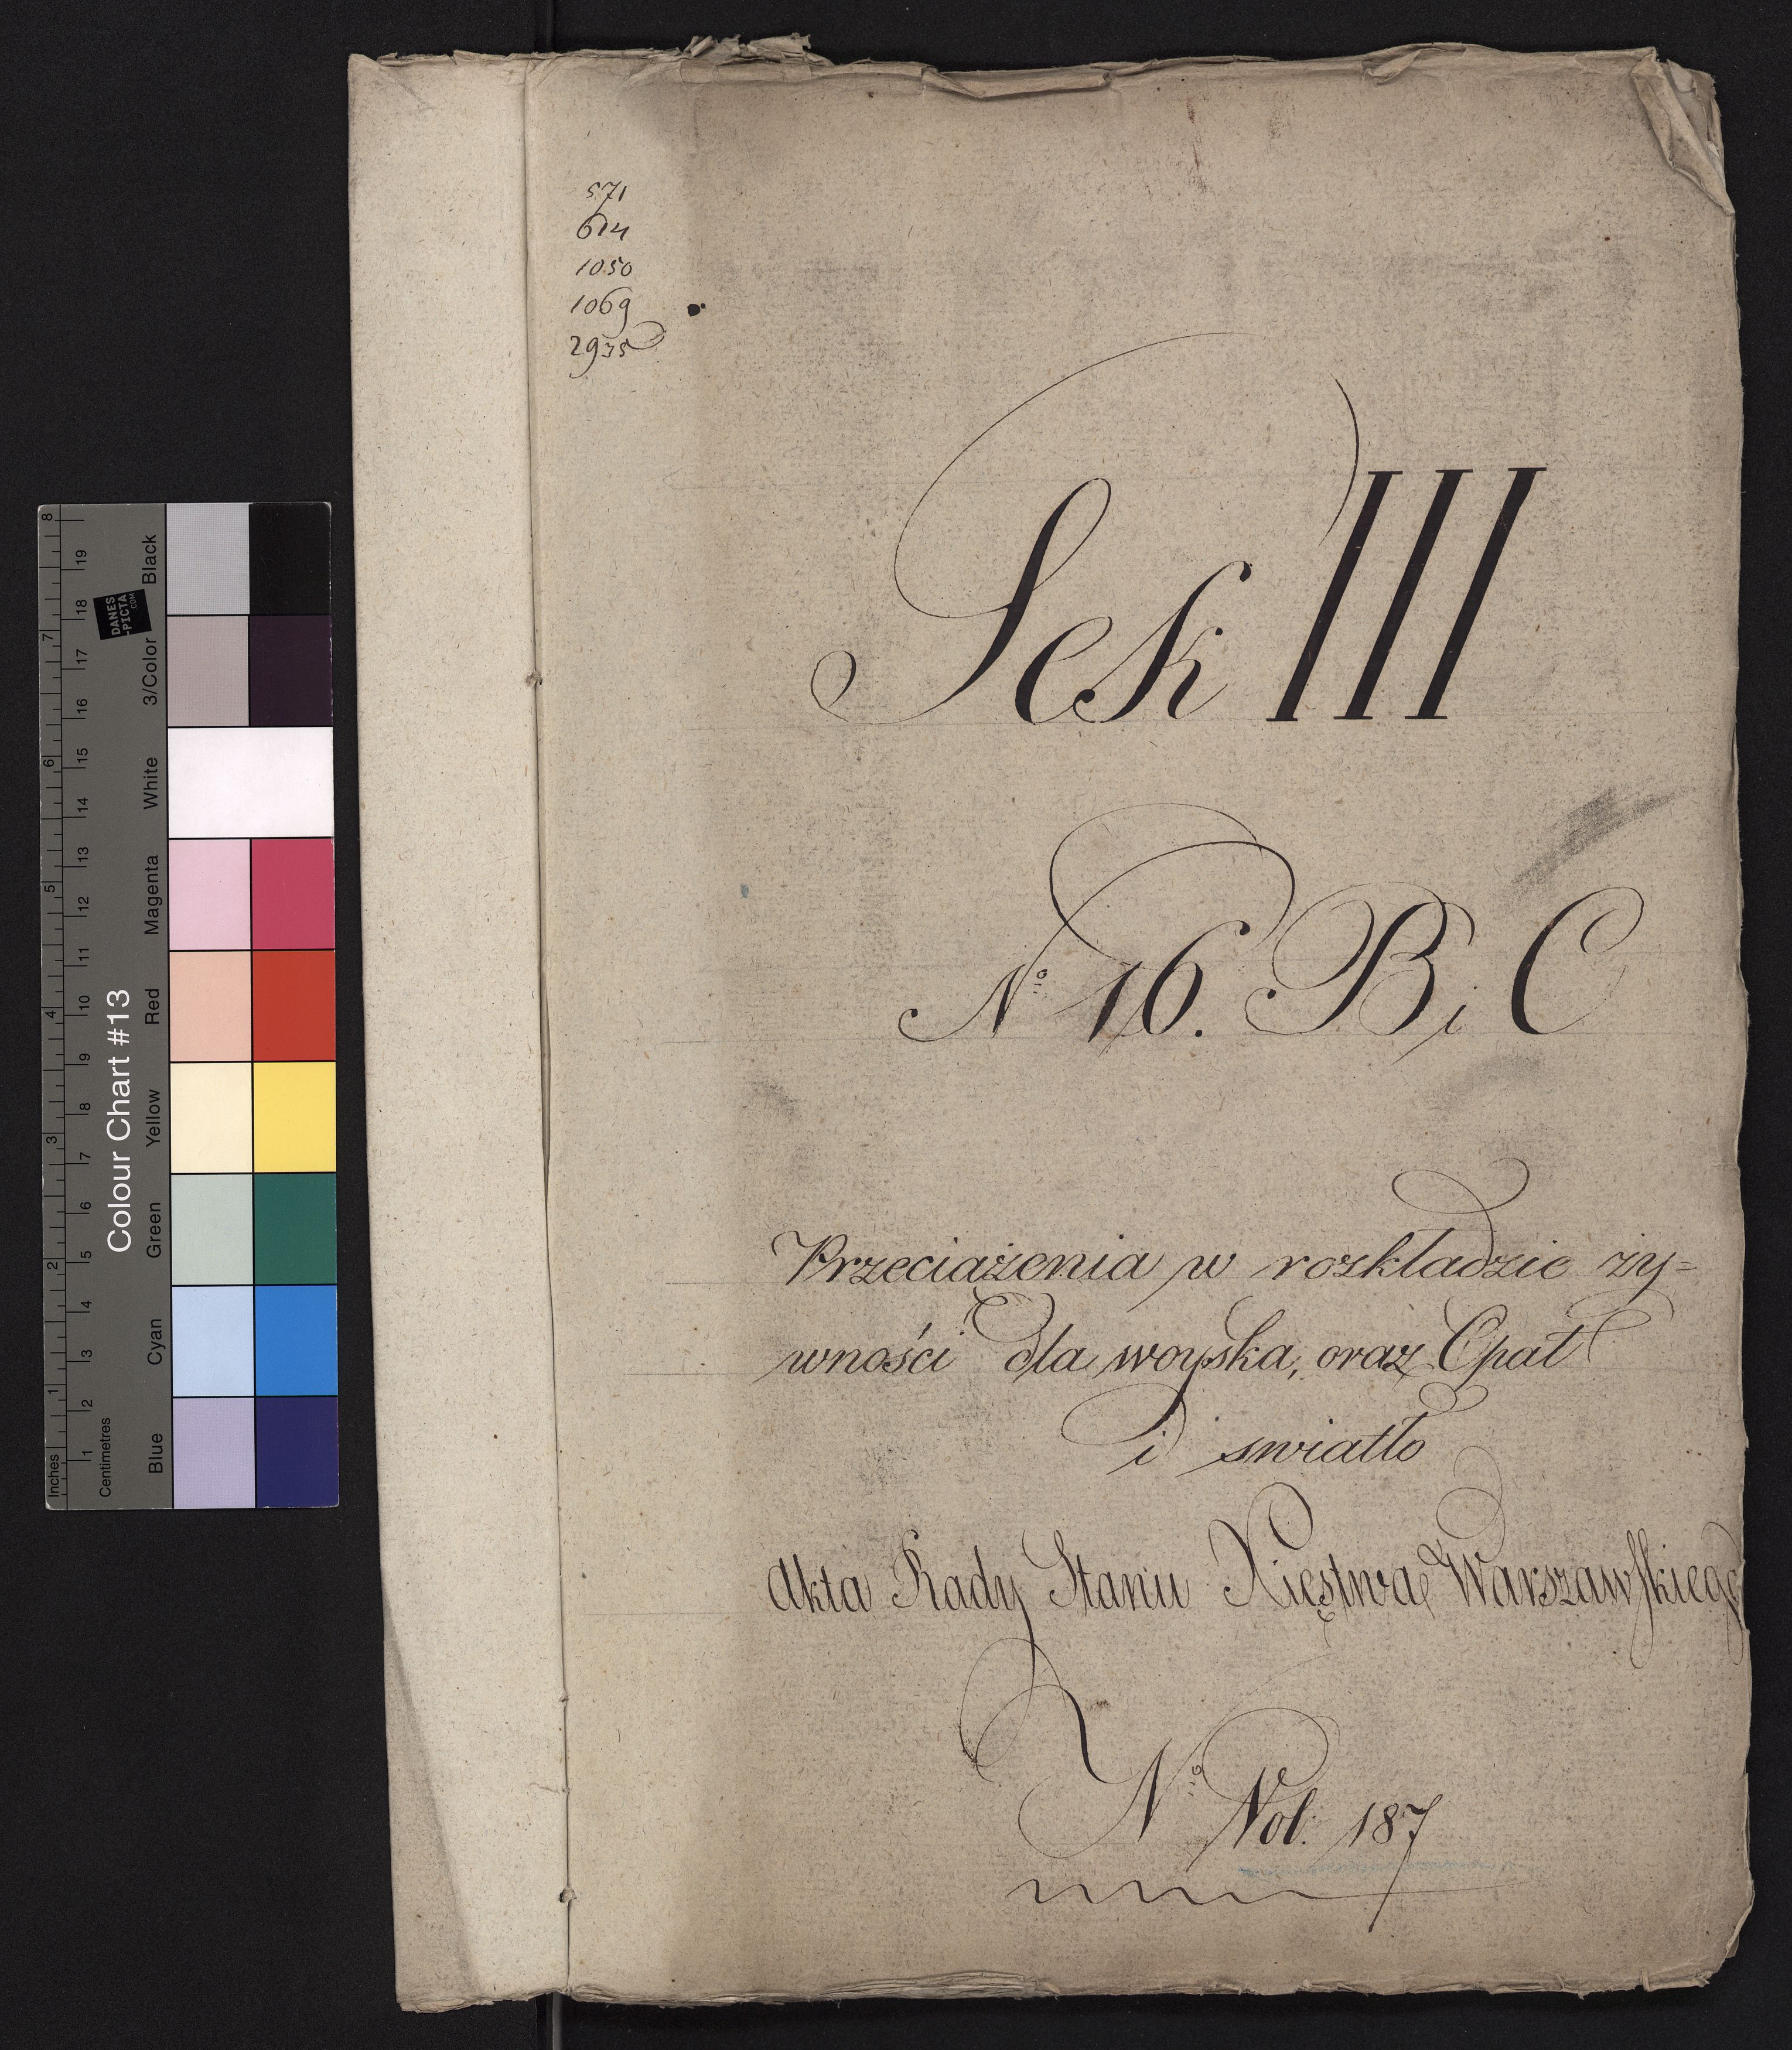 571
614
1050
1069
2935
Sek III
No 16. B i C
Przeciażenia w rozkładzie ży=
wności dla woyska, oraz Opał
i swiatło
Akta Rady Stanu Xięstwa Warszawskiego
No Vol. 187
Colour Chart #13
Blue Cyan Green Yellow Red Magenta White 3/Color Black
DANES
-PICTA
.COM
Inches 1 2 3 4 5 6 7 8
Centimetres 1 2 3 4 5 6 7 8 9 10 11 12 13 14 15 16 17 18 19